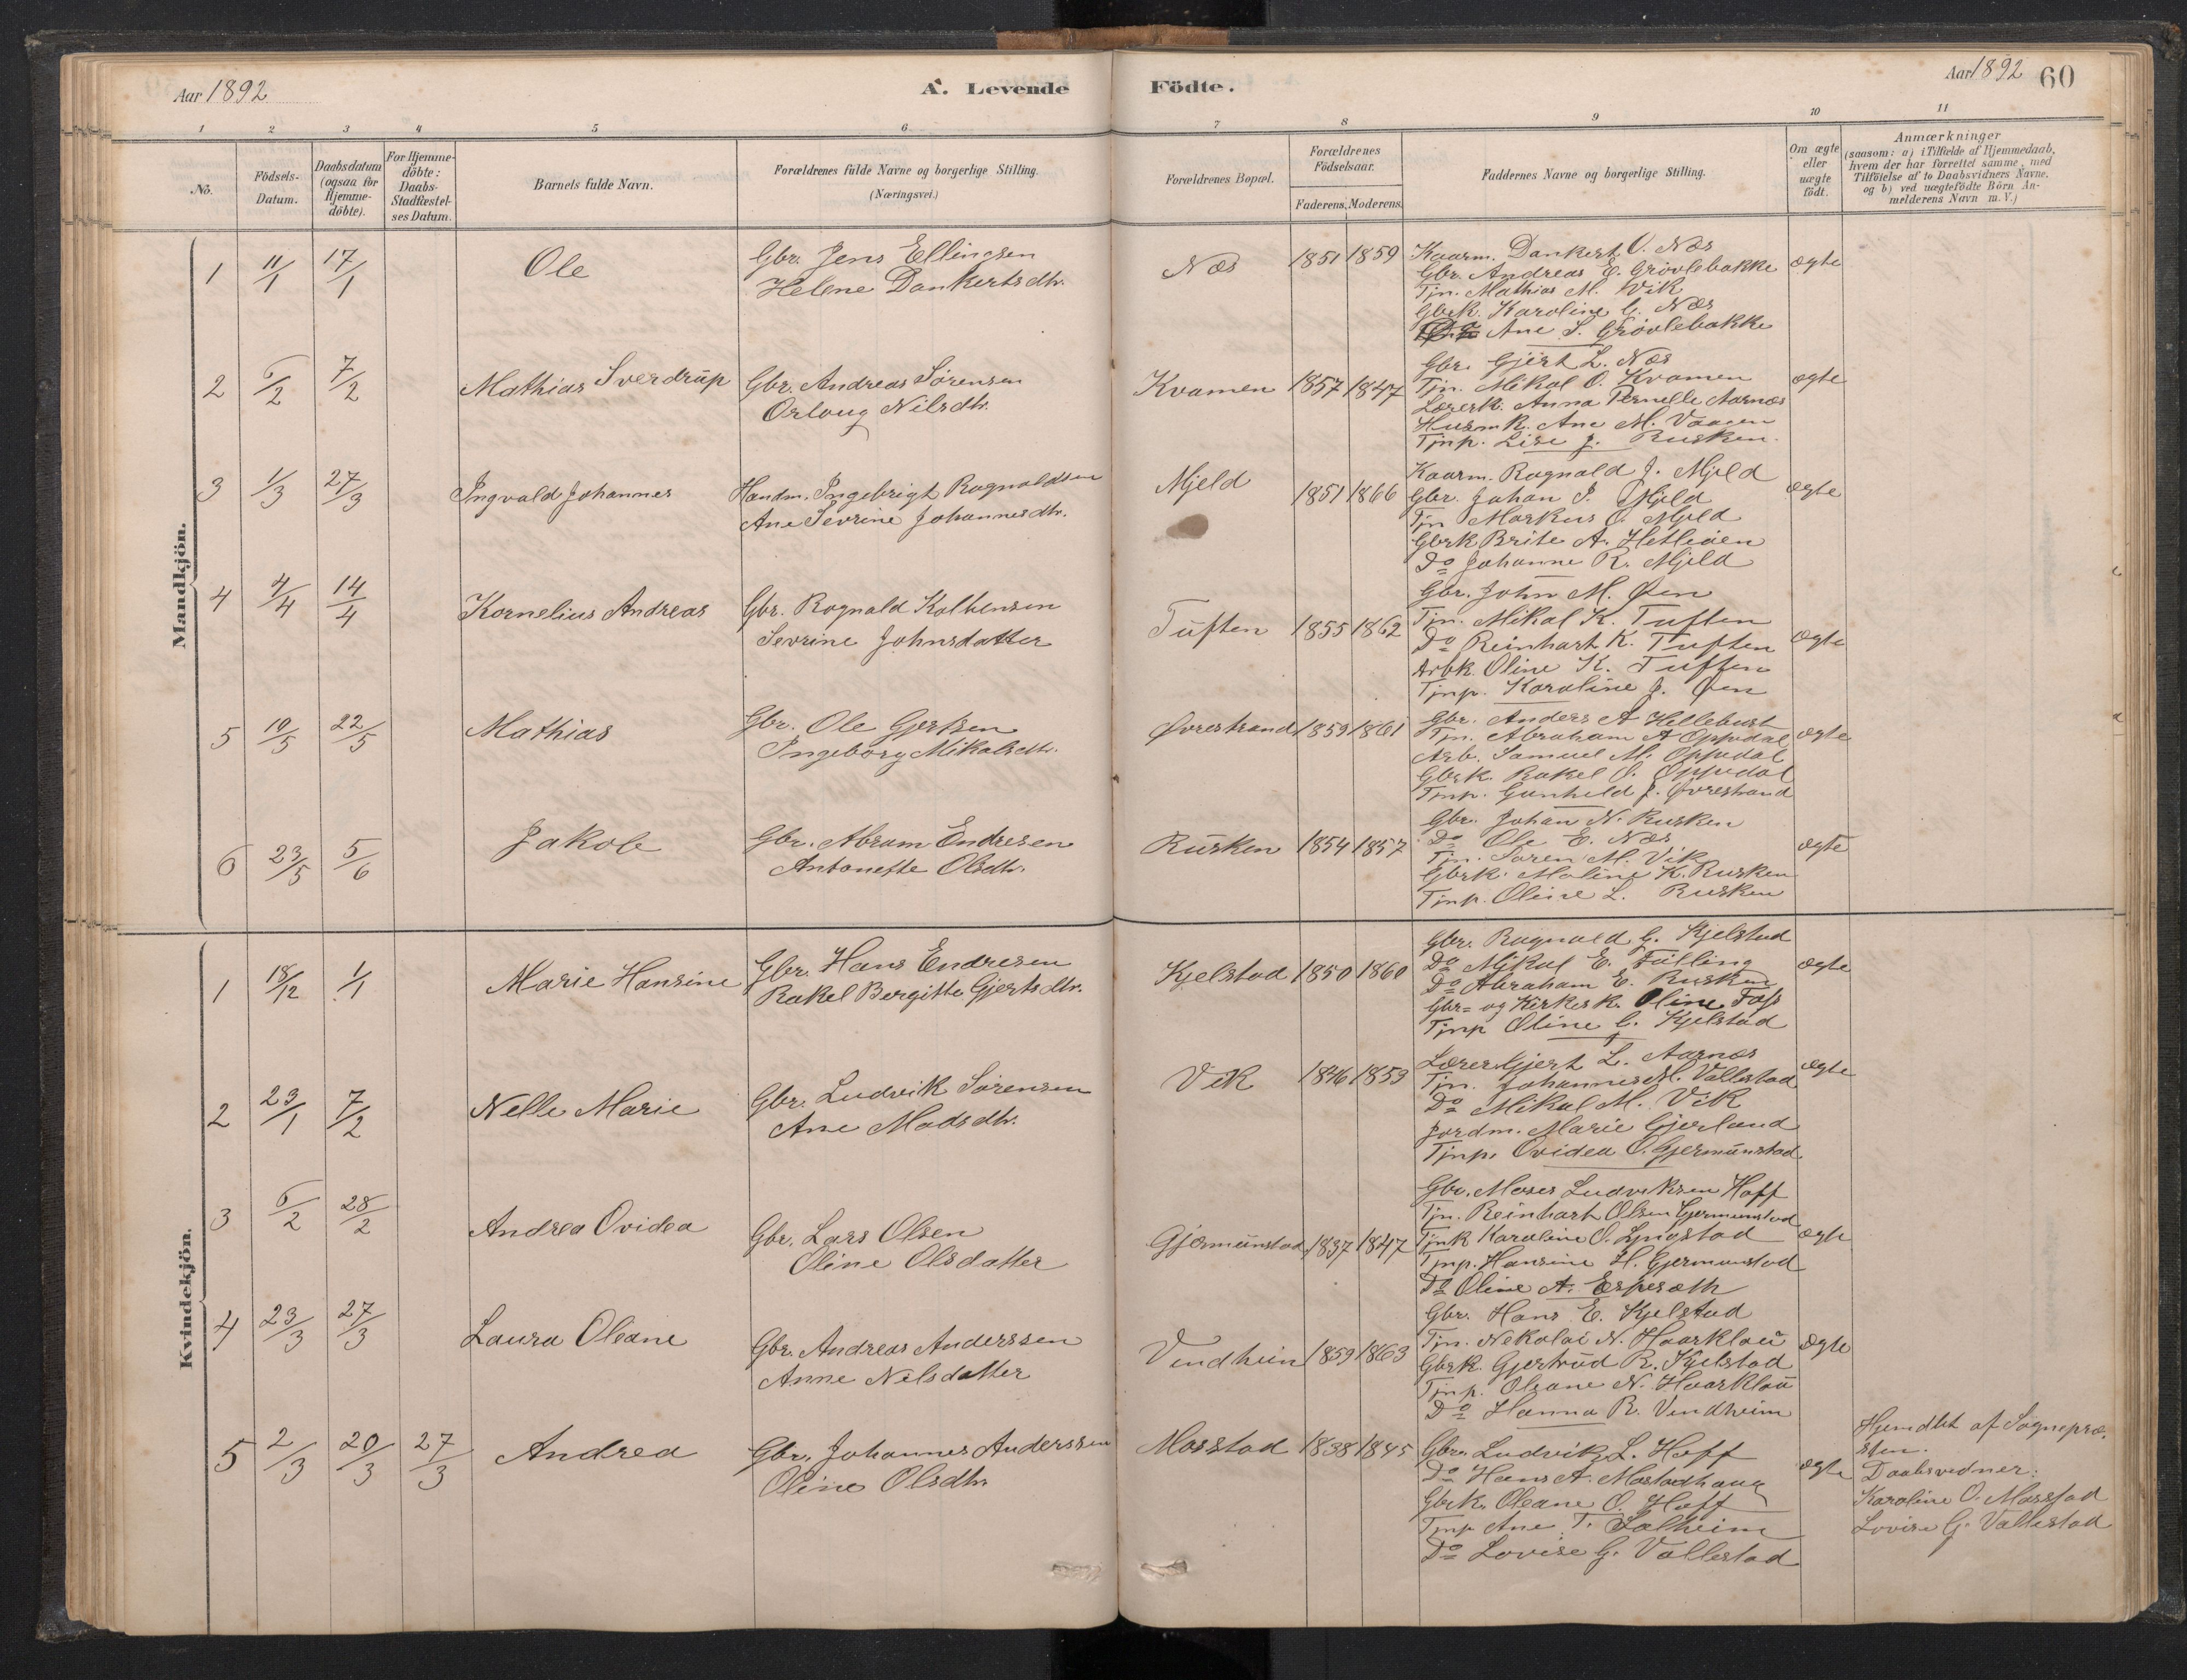 Aar 1892
A. Levende Födte.
Aar 1892 60
1 2 3 4 5 6 7 8 9 10 11
No.
Födsels-Datum.
Daabsdatum (ogsaa for Hjemme-döbte).
For Hjemme-döbte: Daabs-Stadfæstel-ses Datum.
Barnets fulde Navn.
Forældrenes fulde Navne og borgerlige Stilling.
(Næringsvei.)
Forældrenes Bopæl.
Forældrenes Födselsaar.
Faderens. Moderens.
Faddernes Navne og borgerlige Stilling.
Om ægte eller uægte födt.
Anmærkninger
(saasom: a) i Tilfælde af Hjemmedaab,
hvem der har forrettet samme, med
Tilföielse af to Daabsvidners Navne,
og b) ved uægtefödte Börn An-
melderens Navn m. V.)
Mandkjön.
1 11/1 17/1 Ole
Gbr. Jens Ellingsen
Helene Dankertsdtr.
Næs 1851 1859
Kaarm. Dankert O. Næs
Gbr. Andreas E. Grövlebakke
Tjn. Mathias M. Vik
Gbrk. Karoline G. Næs
Ane S. Grövlebakke
ægte
2 6/2 7/2 Mathias Sverdrup
Gbr. Andreas Sörensen
Orloug Nilsdtr.
Kvamen 1857 1847
Gbr. Gjert L. Næs
Tjn. Mikal O. Kvamen
Lærersk. Anna Pernelle Aarnæs
Husmk. Ane M. Vaagen
Tjnp. Lise J. Rusken.
ægte
3 1/3 27/3 Ingvald Johannes
Handm. Ingebrigt Ragnaldsen
Ane Sevrine Johannesdtr.
Mjeld 1851 1866
Kaarm. Ragnald J. Mjeld
Gbr. Johan I. Mjeld
Tjn Markus O. Mjeld
Gbrk Brite A. Hetleöen
Do Johanne R. Mjeld
ægte
4 4/4 14/4 Kornelius Andreas
Gbr. Ragnald Kolbensen
Sevrine Johnsdatter
Tuften 1855 1862
Gbr. John M. Öen
Tjn. Mikal K. Tuften
Do Reinhart K. Tuften
Arbk. Oline K. Tuften
Tjnp. Karoline J. Öen
ægte
5 10/5 22/5 Mathias
Gbr. Ole Gjertsen
Ingeborg Mikalsdtr.
Øvrestrand 1859 1861
Gbr. Anders A Hellebust
Tjn. Abraham A Oppedal
Arb. Samuel M. Oppedal
Gbrk. Rakel O. Oppedal
Tjnp. Gunhild J. Øvrestrand
ægte
6 23/5 5/6 Jakob
Gbr. Abram Endresen
Antonette Olsdtr.
Rusken 1854 1857
Gbr. Johan N. Rusken
Do Ole E. Næs
Tjn. Sören M. Vik
Gbrk. Maline K. Rusken
Tjnp. Oline L. Rusken
ægte
Kvindekjön.
1 18/12 1/1 Marie Hansine
Gbr. Hans Endresen
Rakel Bergitte Gjertsdtr.
Kjelstad 1850 1860
Gbr. Ragnald G. Kjelstad
Do Mikal E. Fülling
Do Abraham E. Rusken
Gbr= og Kirkesk. Oline Foss
Tjnp Oline G. Kjelstad
ægte
2 23/1 7/2 Nelle Marie
Gbr. Ludvik Sörensen
Ane Madsdtr.
Vik 1846 1853
Lærer Gjert L. Aarnæs
Tjn. Johannes M. Vallestad
Do Mikal M. Vik
Jordm. Marie Gjerland
Tjnp. Ovidea O. Gjermunstad.
ægte
3 6/2 28/2 Andrea Ovidea
Gbr. Lars Olsen
Oline Olsdatter
Gjermunstad 1837 1847
Gbr. Moses Ludviksen Hoff
Tjn. Reinhart Olsen Gjermunstad
Tjnk Karoline O. Lyngstad
Tjnp. Hansine H. Gjermunstad
Do Oline A. Espeseth
ægte
4 23/3 27/3 Laura Oleane
Gbr. Andreas Anderssen
Anne Nelsdatter
Vendheim 1859 1863
Gbr. Hans E. Kjelstad
Tjn. Nekolai N. Haarklau
Gbrk. Gjertrud R. Kjelstad
Tjnp. Oleane N. Haarklau
Do Hanna R. Vendheim
ægte
5 2/3 20/3 27/3 Andrea
Gbr. Johannes Anderssen
Oline Olsdtr.
Masstad 1838 1845
Gbr. Ludvik L. Hoff
Do Hans A. Mastadhaug
Gbrk. Oleane O. Hoff
Tjnp Ane T. Solheim
Do Lovise G. Vallestad
ægte
Hjemdöbt af Sognepræ-
sten.
Daabsvidner:
Karoline O. Masstad
Lovise G. Vallestad